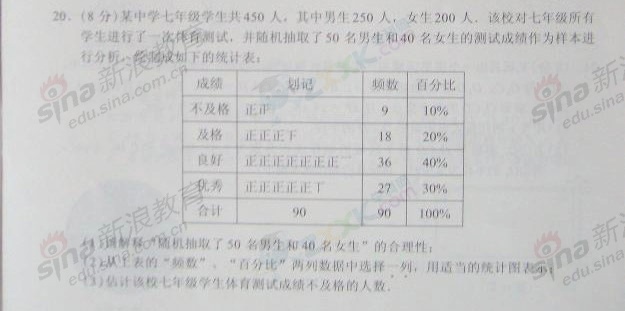 20. (8 分)某中学七年级学生共450 人，其中男生250 人，女生200 人．该校对七年级所有
学生进行了一次体育测试，并随机抽取了 50 名男生和40 名女生的测试成绩作为样本进
行分析，绘制成如下的统计表：
成绩 划记 频数 百分比
不及格 正正 9 10%
及格 正正正下 18 20%
良好 正正正正正正正一 36 40%
优秀 正正正正正丅 27 30%
合计 90 90 100%
(1)请解释“随机抽取了 50 名男生和 40 名女生”的合理性；
(2)从上表的“频数”、“百分比”两列数据中选择一列，用适当的统计图表示；
(3)估计该校七年级学生体育测试成绩不及格的人数．
sina新浪教育
edu.sina.com.cn
sina新浪教育
edu.sina.com.cn